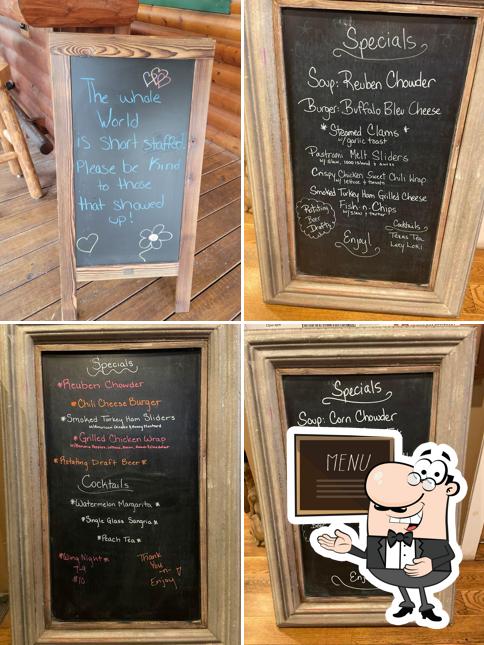 The whole
World
is Short staffed.
Please be kind
to those
that showed
up!
Specials
Soup: Reuben Chowder
Burger: Buffalo Bleu Cheese
* Steamed Clams *
w/garlic toast
Pastrami Melt Sliders
Crispy Chicken Sweet Chili Wrap
w/ lettuce + tomato
Smoked Turkey Ham Grilled Cheese
Fish-n-Chips
Rotating
Beer
Drafts
Enjoy!
Cocktails
Texas Tea
Specials
*Reuben Chowder
*Chili Cheese Burger
*Smoked Turkey Ham Sliders
w/American Cheese & Honey Mustard
*Grilled Chicken Wrap
*Rotating Draft Beer*
Cocktails
*Watermelon Margarita*
*Single Glass Sangria*
*Peach Tea*
*Wing Night*
7-9
$10
Thank
You
-n-
Enjoy
Specials
Soup: Corn Chowder
MENU